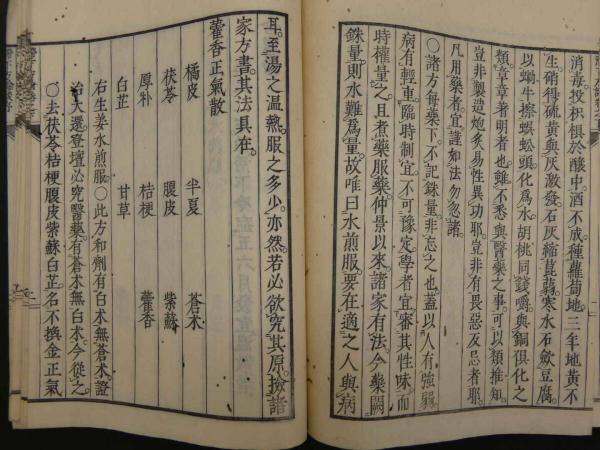 消毒投枳椇於釀中酒不成種蘿蔔地三年地黃不
生硝得硫黃與灰激發石灰縮崑蒻寒水石歛豆腐
以蝸牛擦蜈蚣頭化爲水胡桃同錢嚼與銅俱化之
類章章著明者也雖不悉與醫藥之事可以類推知
豈非製造炮炙易性異功耶豈非有畏惡及忌者耶
凡用藥者宜謹如法勿忽諸
○諸方每藥下不記銖量非忘之也蓋以人有強弱
病有輕重臨時制宜不可豫定學者宜審其性味而
時權量之且煮藥服藥仲景以來諸家有法今藥闕
銖量則水難爲量故唯曰水煎服要在適之人與病
耳至湯之温熱服之多少亦然若必欲究其原撿諸
家方書其法具在
藿香正氣散
橘皮 半夏 蒼朮
茯苓 腹皮 紫蘇
厚朴 桔梗 藿香
白芷 甘草
右生姜水煎服○此方和劑有白朮無蒼朮證
治大還登壇必究醫藥有蒼朮無白朮今從之
○去茯苓桔梗腹皮紫蘇白芷名不換金正氣